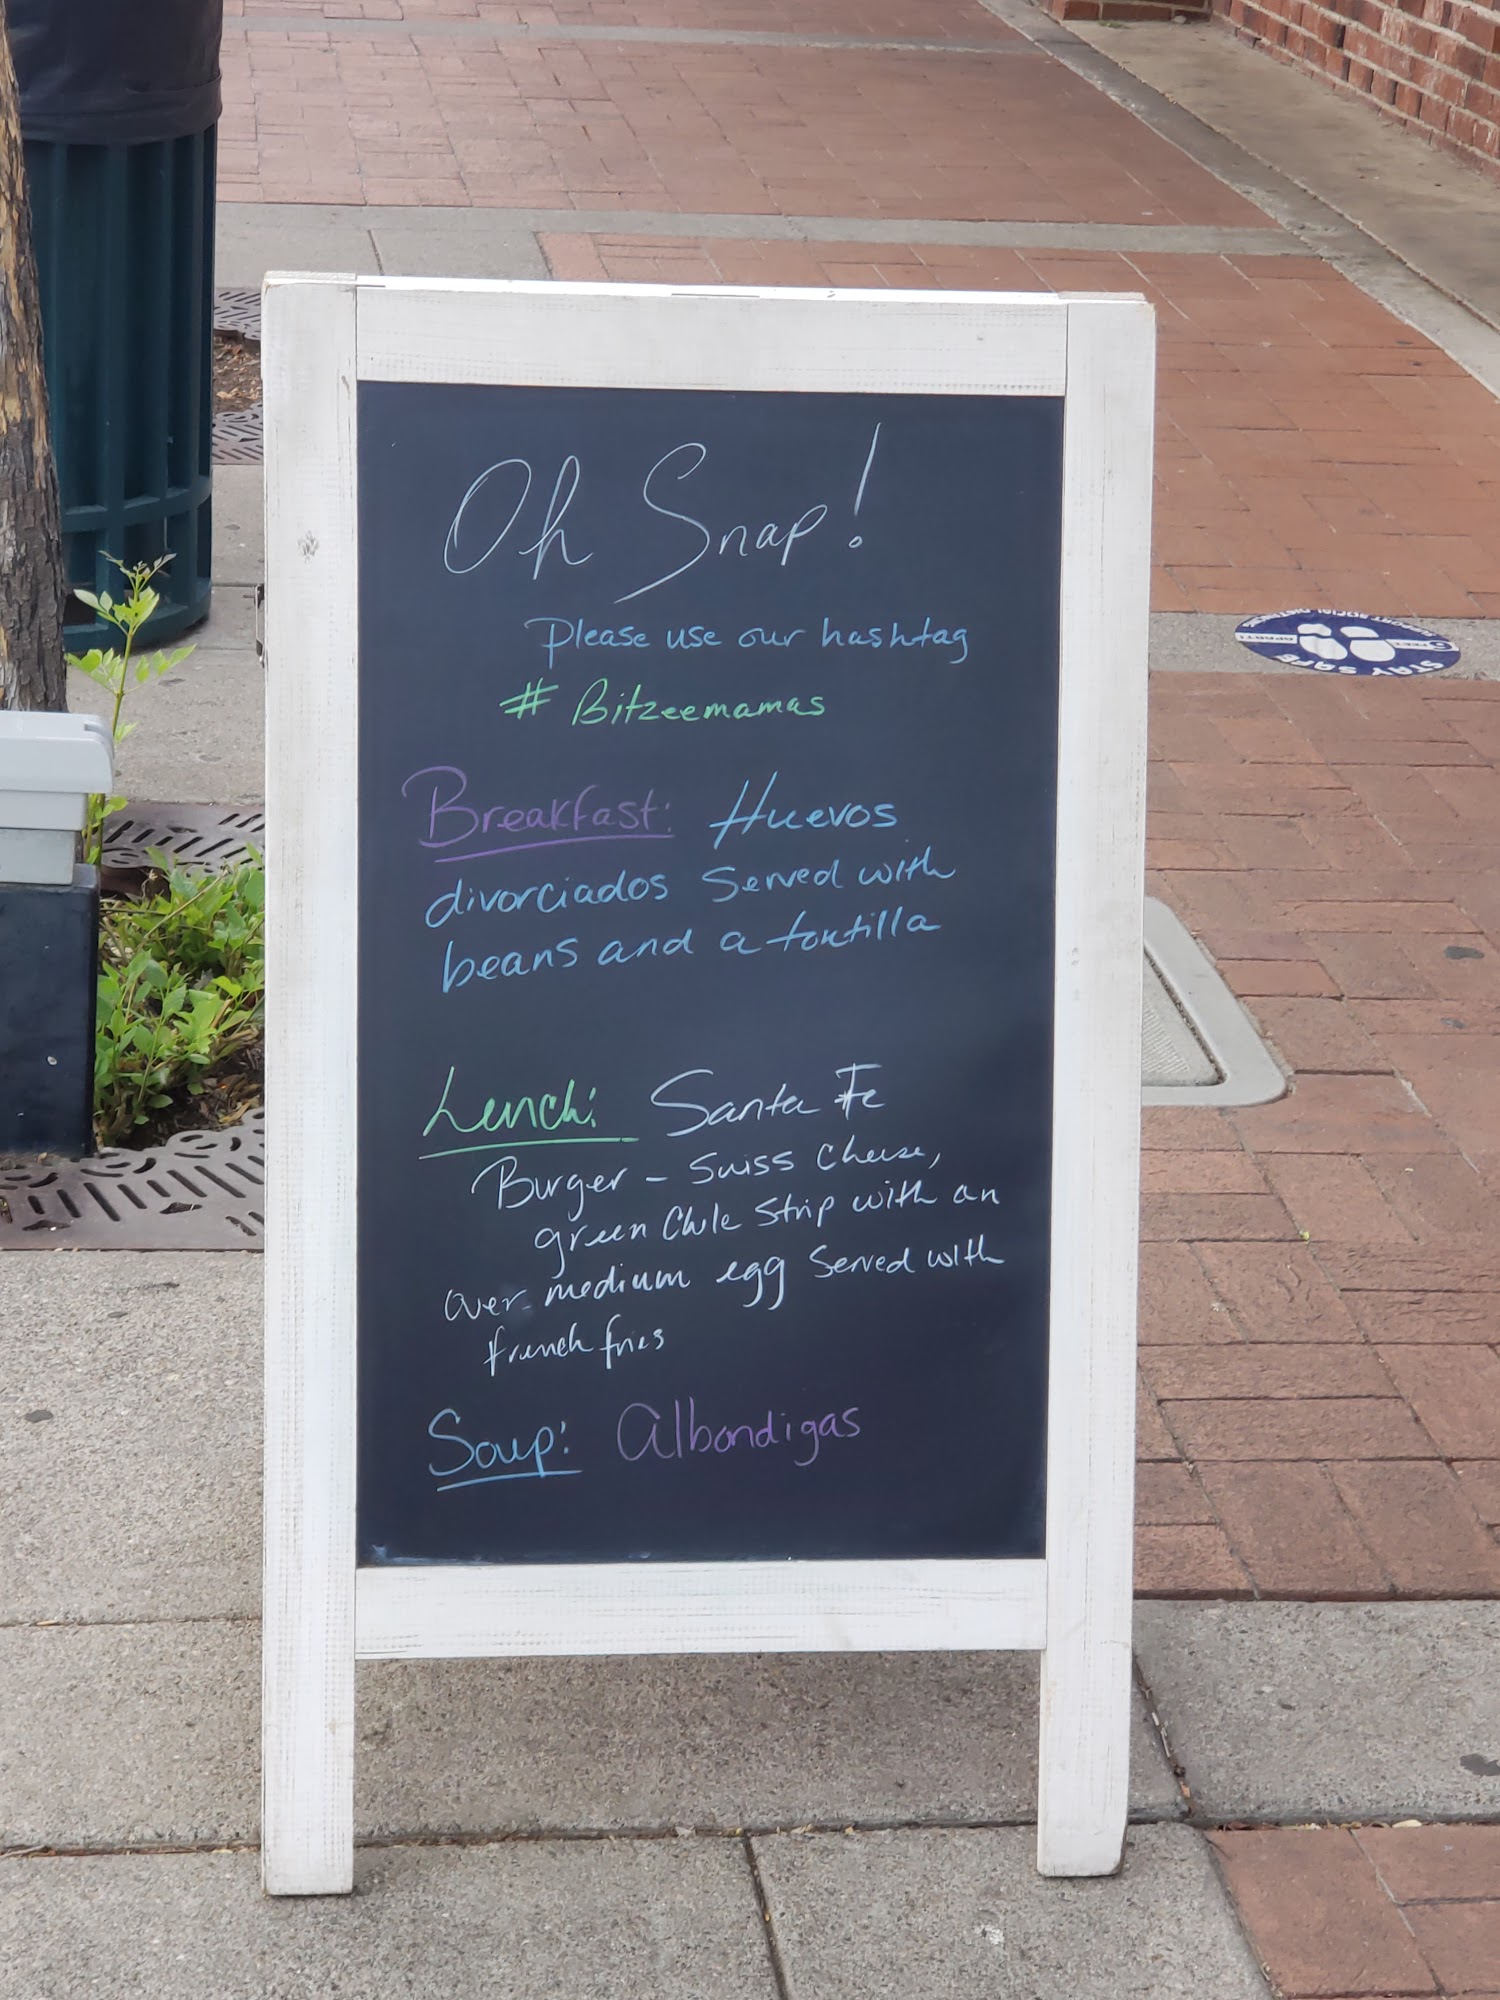 Oh Snap!
Please use our hashtag
# Bitzeemamas
Breakfast: Huevos
divorciados Served with
beans and a tortilla
Lunch: Santa Fe
Burger - Swiss Cheese,
green Chile Strip with an
over medium egg Served with
french fries
Soup: Albondigas
STAY SAFE
6 FEET
APART!